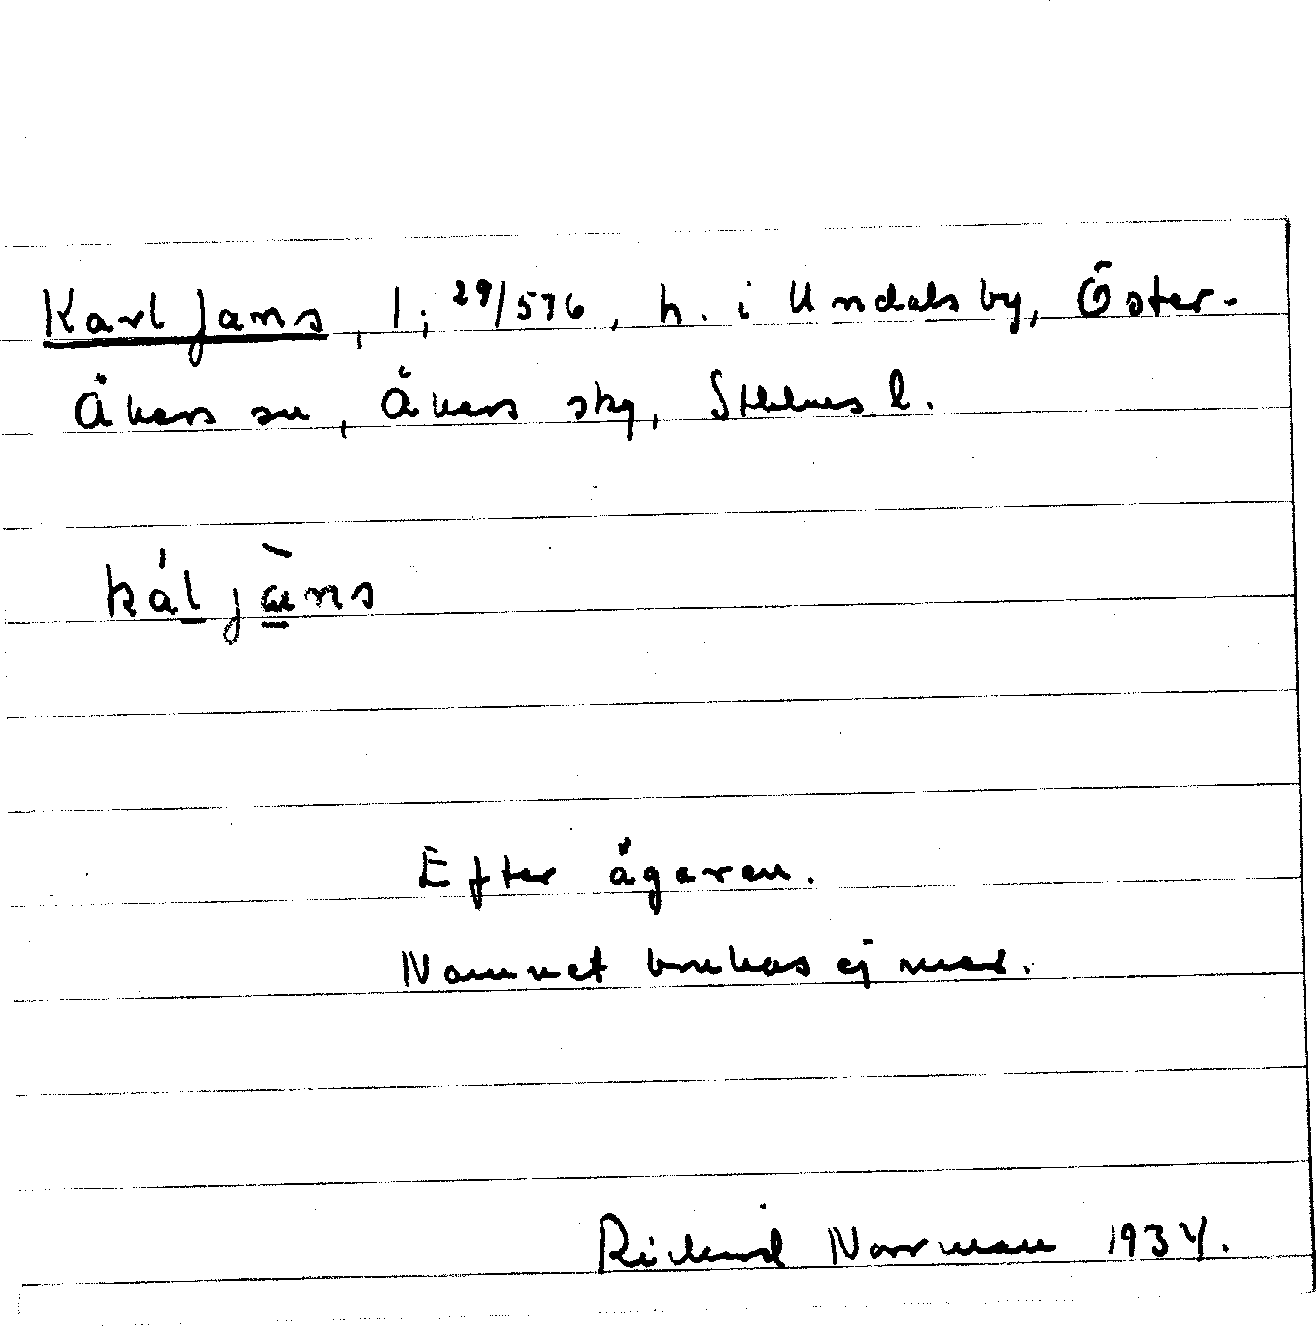 Karl Jans, 1; 29/576, h. i Undals by, Öster-
Åkers sn, Åkers skg, Sthlms l.
kál jàns
Efter ägaren.
Namnet brukas ej mer.
Rickard Norrman 1934.